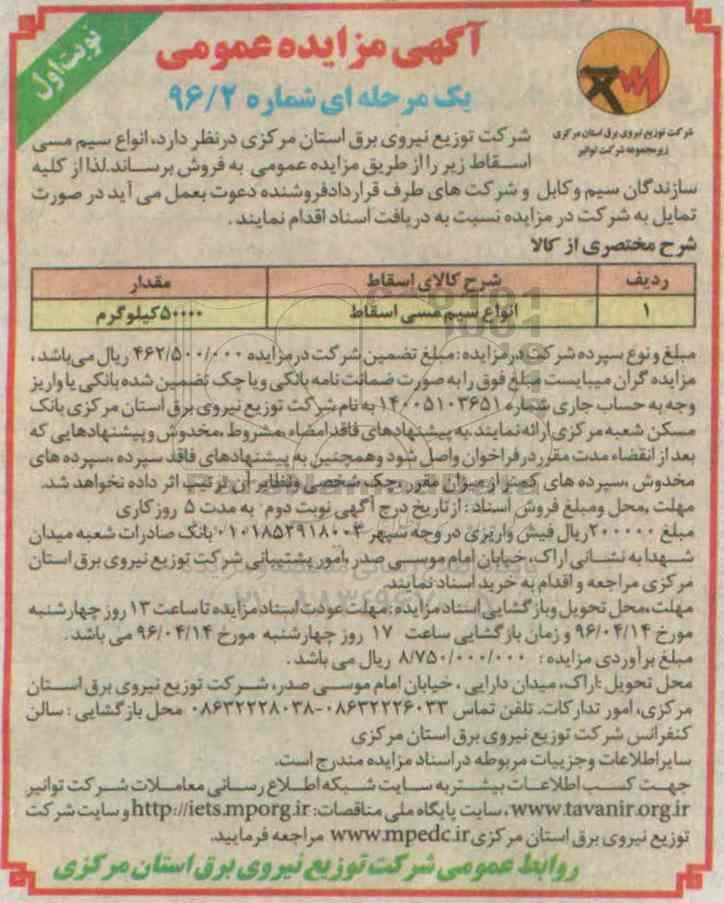 نوبت اول
آگهی مزایده عمومی
یک مرحله ای شماره ۹۶/۲
شرکت توزیع نیروی برق استان مرکزی
زیرمجموعه شرکت توانیر
شرکت توزیع نیروی برق استان مرکزی درنظر دارد، انواع سیم مسی
اسقاط زیر را از طریق مزایده عمومی به فروش برساند. لذا از کلیه
سازندگان سیم و کابل و شرکت های طرف قراردادفروشنده دعوت بعمل می آید در صورت
تمایل به شرکت در مزایده نسبت به دریافت اسناد اقدام نمایند.
شرح مختصری از کالا
ردیف شرح کالای اسقاط مقدار
۱ انواع سیم مسی اسقاط ۵۰۰۰۰کیلوگرم
مبلغ و نوع سپرده شرکت درمزایده: مبلغ تضمین شرکت درمزایده ۴۶۲/۵۰۰/۰۰۰ ریال می‌باشد،
مزایده گران میبایست مبلغ فوق را به صورت ضمانت نامه بانکی ویا چک تضمین شده بانکی یا واریز
وجه به حساب جاری شماره ۱۴۰۰۵۱۰۳۶۵۱ به نام شرکت توزیع نیروی برق استان مرکزی بانک
مسکن شعبه مرکزی ارائه نمایند. به پیشنهادهای فاقد امضاء، مشروط، مخدوش وپیشنهادهایی که
بعد از انقضاء مدت مقرر در فراخوان واصل شود وهمچنین به پیشنهادهای فاقد سپرده، سپرده های
مخدوش، سپرده های کمتر از میزان مقرر، چک شخصی ونظایر آن ترتیب اثر داده نخواهد شد.
مهلت، محل ومبلغ فروش اسناد: از تاریخ درج آگهی نوبت دوم به مدت ۵ روز کاری
مبلغ ۲۰۰۰۰۰ریال فیش واریزی در وجه سپهر ۰۱۰۱۸۵۲۹۱۸۰۰۴ بانک صادرات شعبه میدان
شهدا به نشانی اراک، خیابان امام موسی صدر، امور پشتیبانی شرکت توزیع نیروی برق استان
مرکزی مراجعه و اقدام به خرید اسناد نمایند.
مهلت، محل تحویل وبازگشایی اسناد مزایده: مهلت عودت اسناد مزایده تا ساعت ۱۳ روز چهارشنبه
مورخ ۹۶/۰۴/۱۴ و زمان بازگشایی ساعت ۱۷ روز چهارشنبه مورخ ۹۶/۰۴/۱۴ می باشد.
مبلغ برآوردی مزایده: ۸/۷۵۰/۰۰۰/۰۰۰ ریال می باشد.
محل تحویل: اراک، میدان دارایی، خیابان امام موسی صدر، شرکت توزیع نیروی برق استان
مرکزی، امور تدارکات. تلفن تماس ۰۸۶۳۲۲۲۶۰۳۳-۰۸۶۳۲۲۲۸۰۳۸ محل بازگشایی: سالن
کنفرانس شرکت توزیع نیروی برق استان مرکزی
سایر اطلاعات وجزییات مربوطه دراسناد مزایده مندرج است.
جهت کسب اطلاعات بیشتر به سایت شبکه اطلاع رسانی معاملات شرکت توانیر
www.tavanir.org.ir، سایت پایگاه ملی مناقصات: http://iets.mporg.ir و سایت شرکت
توزیع نیروی برق استان مرکزی www.mpedc.ir مراجعه فرمایید.
روابط عمومی شرکت توزیع نیروی برق استان مرکزی